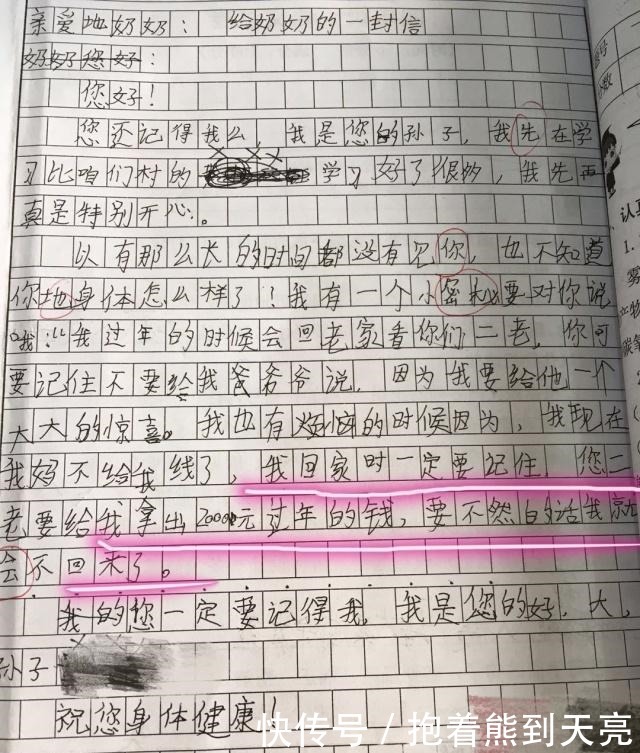 亲爱地奶奶： 给奶奶的一封信
奶奶您好：
您好！
您还记得我么 我是您的孙子，我先在学
习比咱们村的 学习好了很多，我先再
真是特别开心。
以有那么长的时间都没有见你，也不知道
你地身体怎么样了！我有一个小密秘要对你说
哦!! 我过年的时候会回老家看你们二老，你可
要记住不要给我爸爷爷说，因为我要给他一个
大大的惊喜。我也有烦恼的时候因为，我现在
我妈不给我线了，我回家时一定要记住，您二
老要给我拿出20000元过年的钱，要不然的话我就
会不回来了。
我的您一定要记得我，我是您的好，大，
孙子
祝您身体健康！
快传号 / 抱着熊到天亮
认真
1.
雾